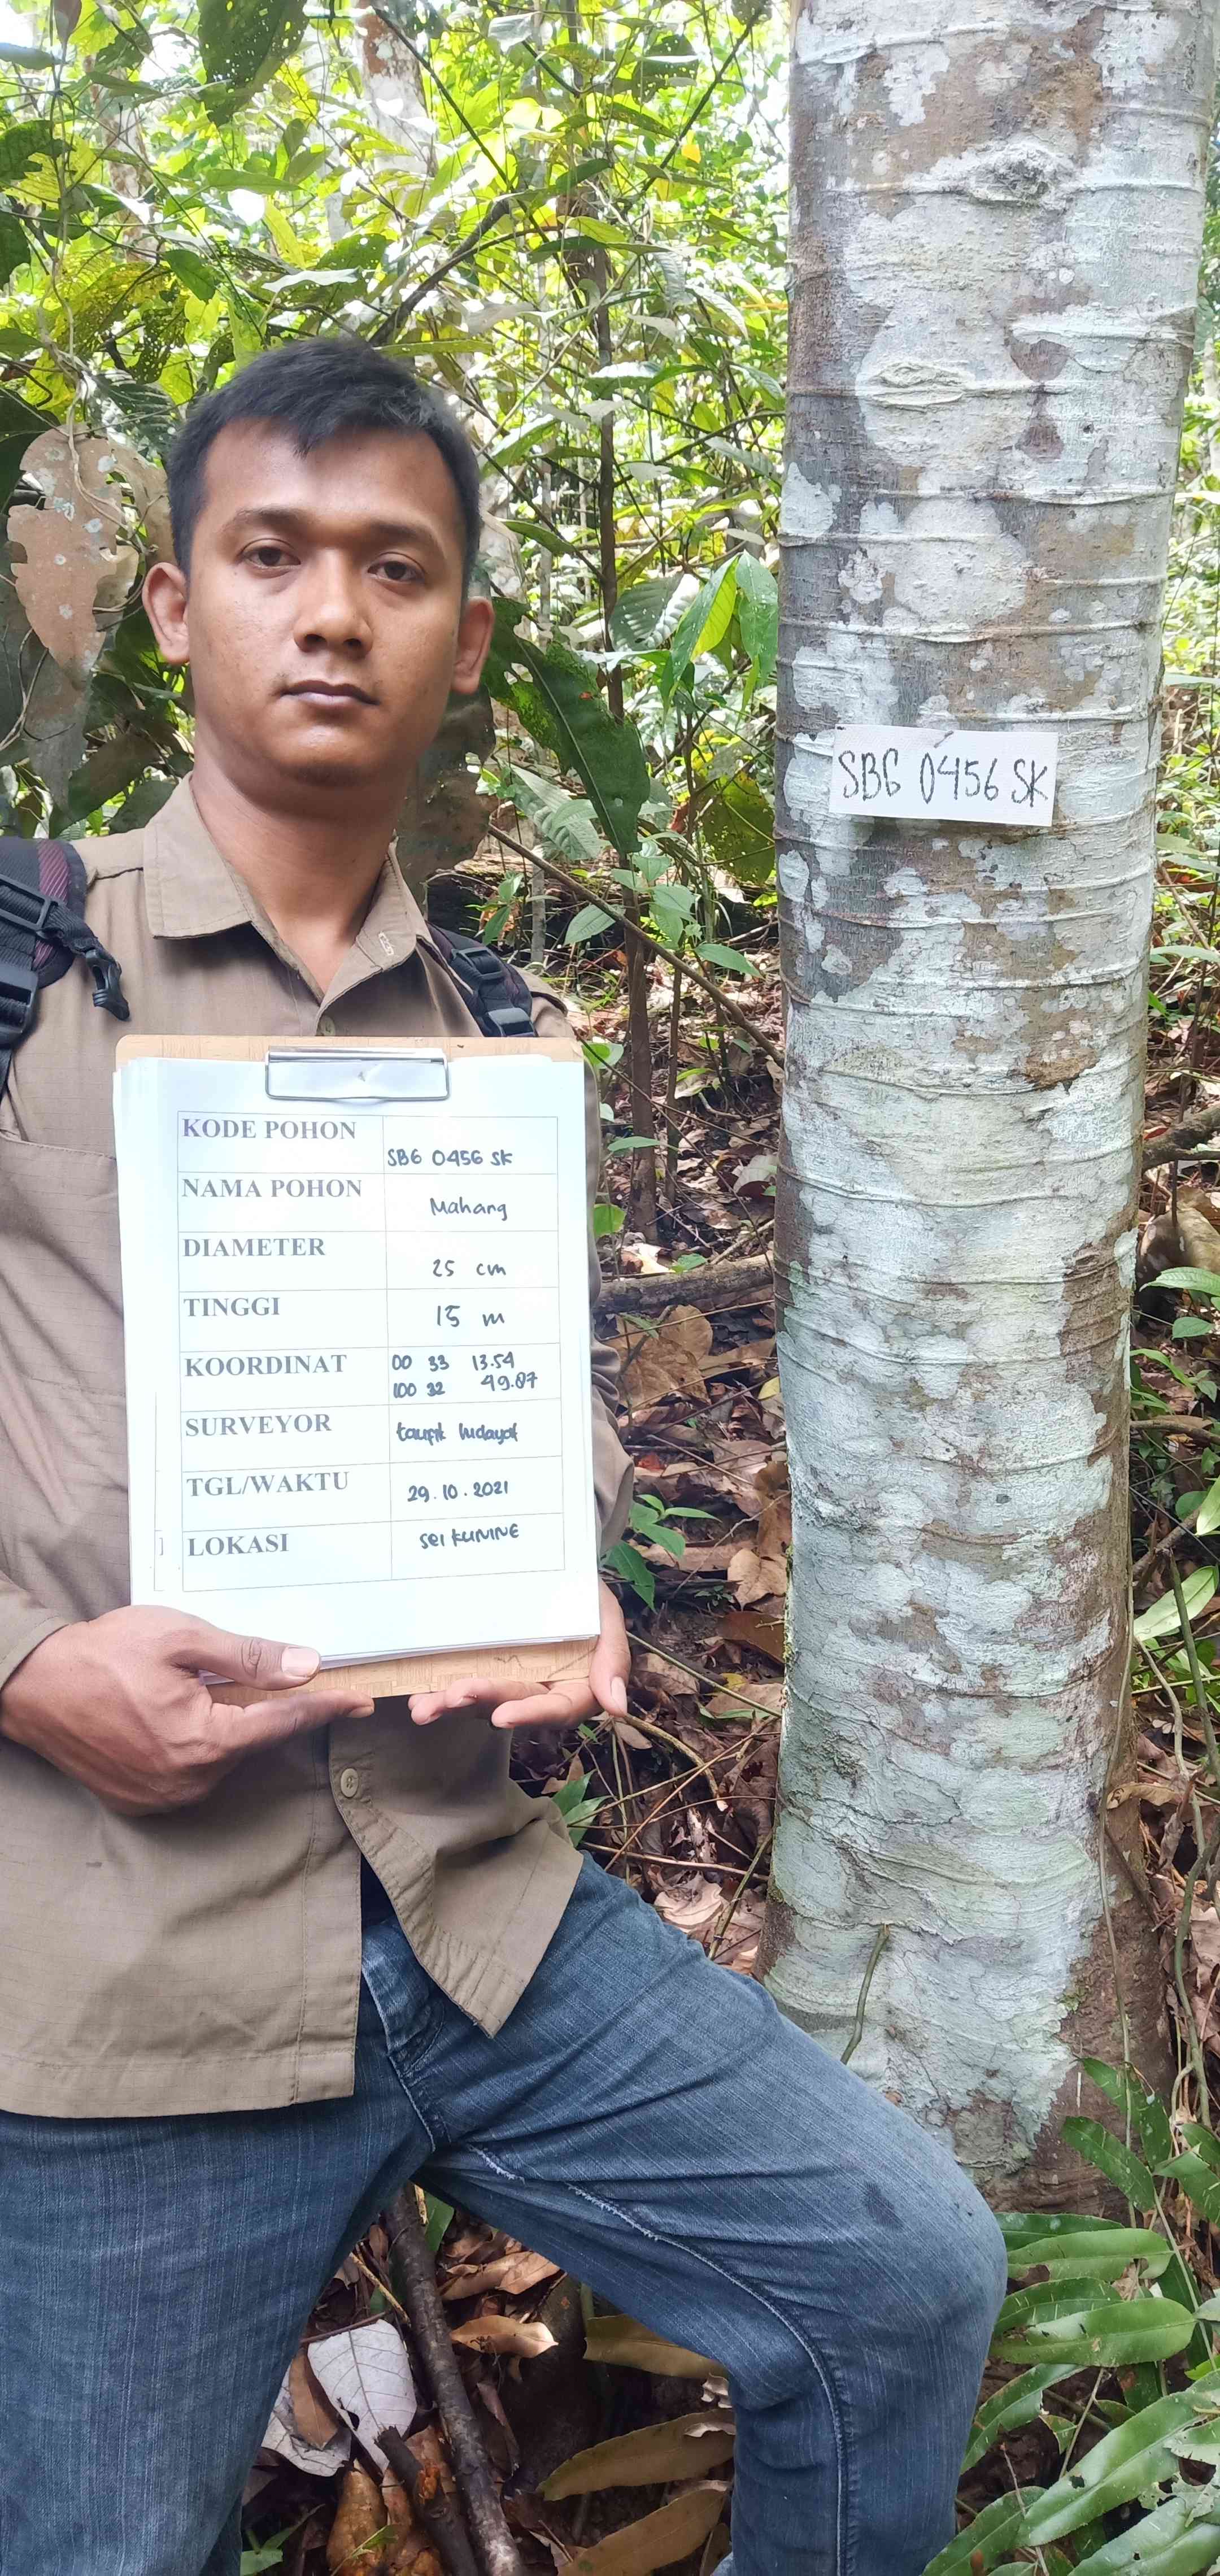 SBG 0456 SK
KODE POHON SBG 0456 SK
NAMA POHON Mahang
DIAMETER 25 cm
TINGGI 15 m
KOORDINAT 00 33 13.54
100 32 49.07
SURVEYOR taufik hidayat
TGL/WAKTU 29.10.2021
LOKASI SEI KUNINE